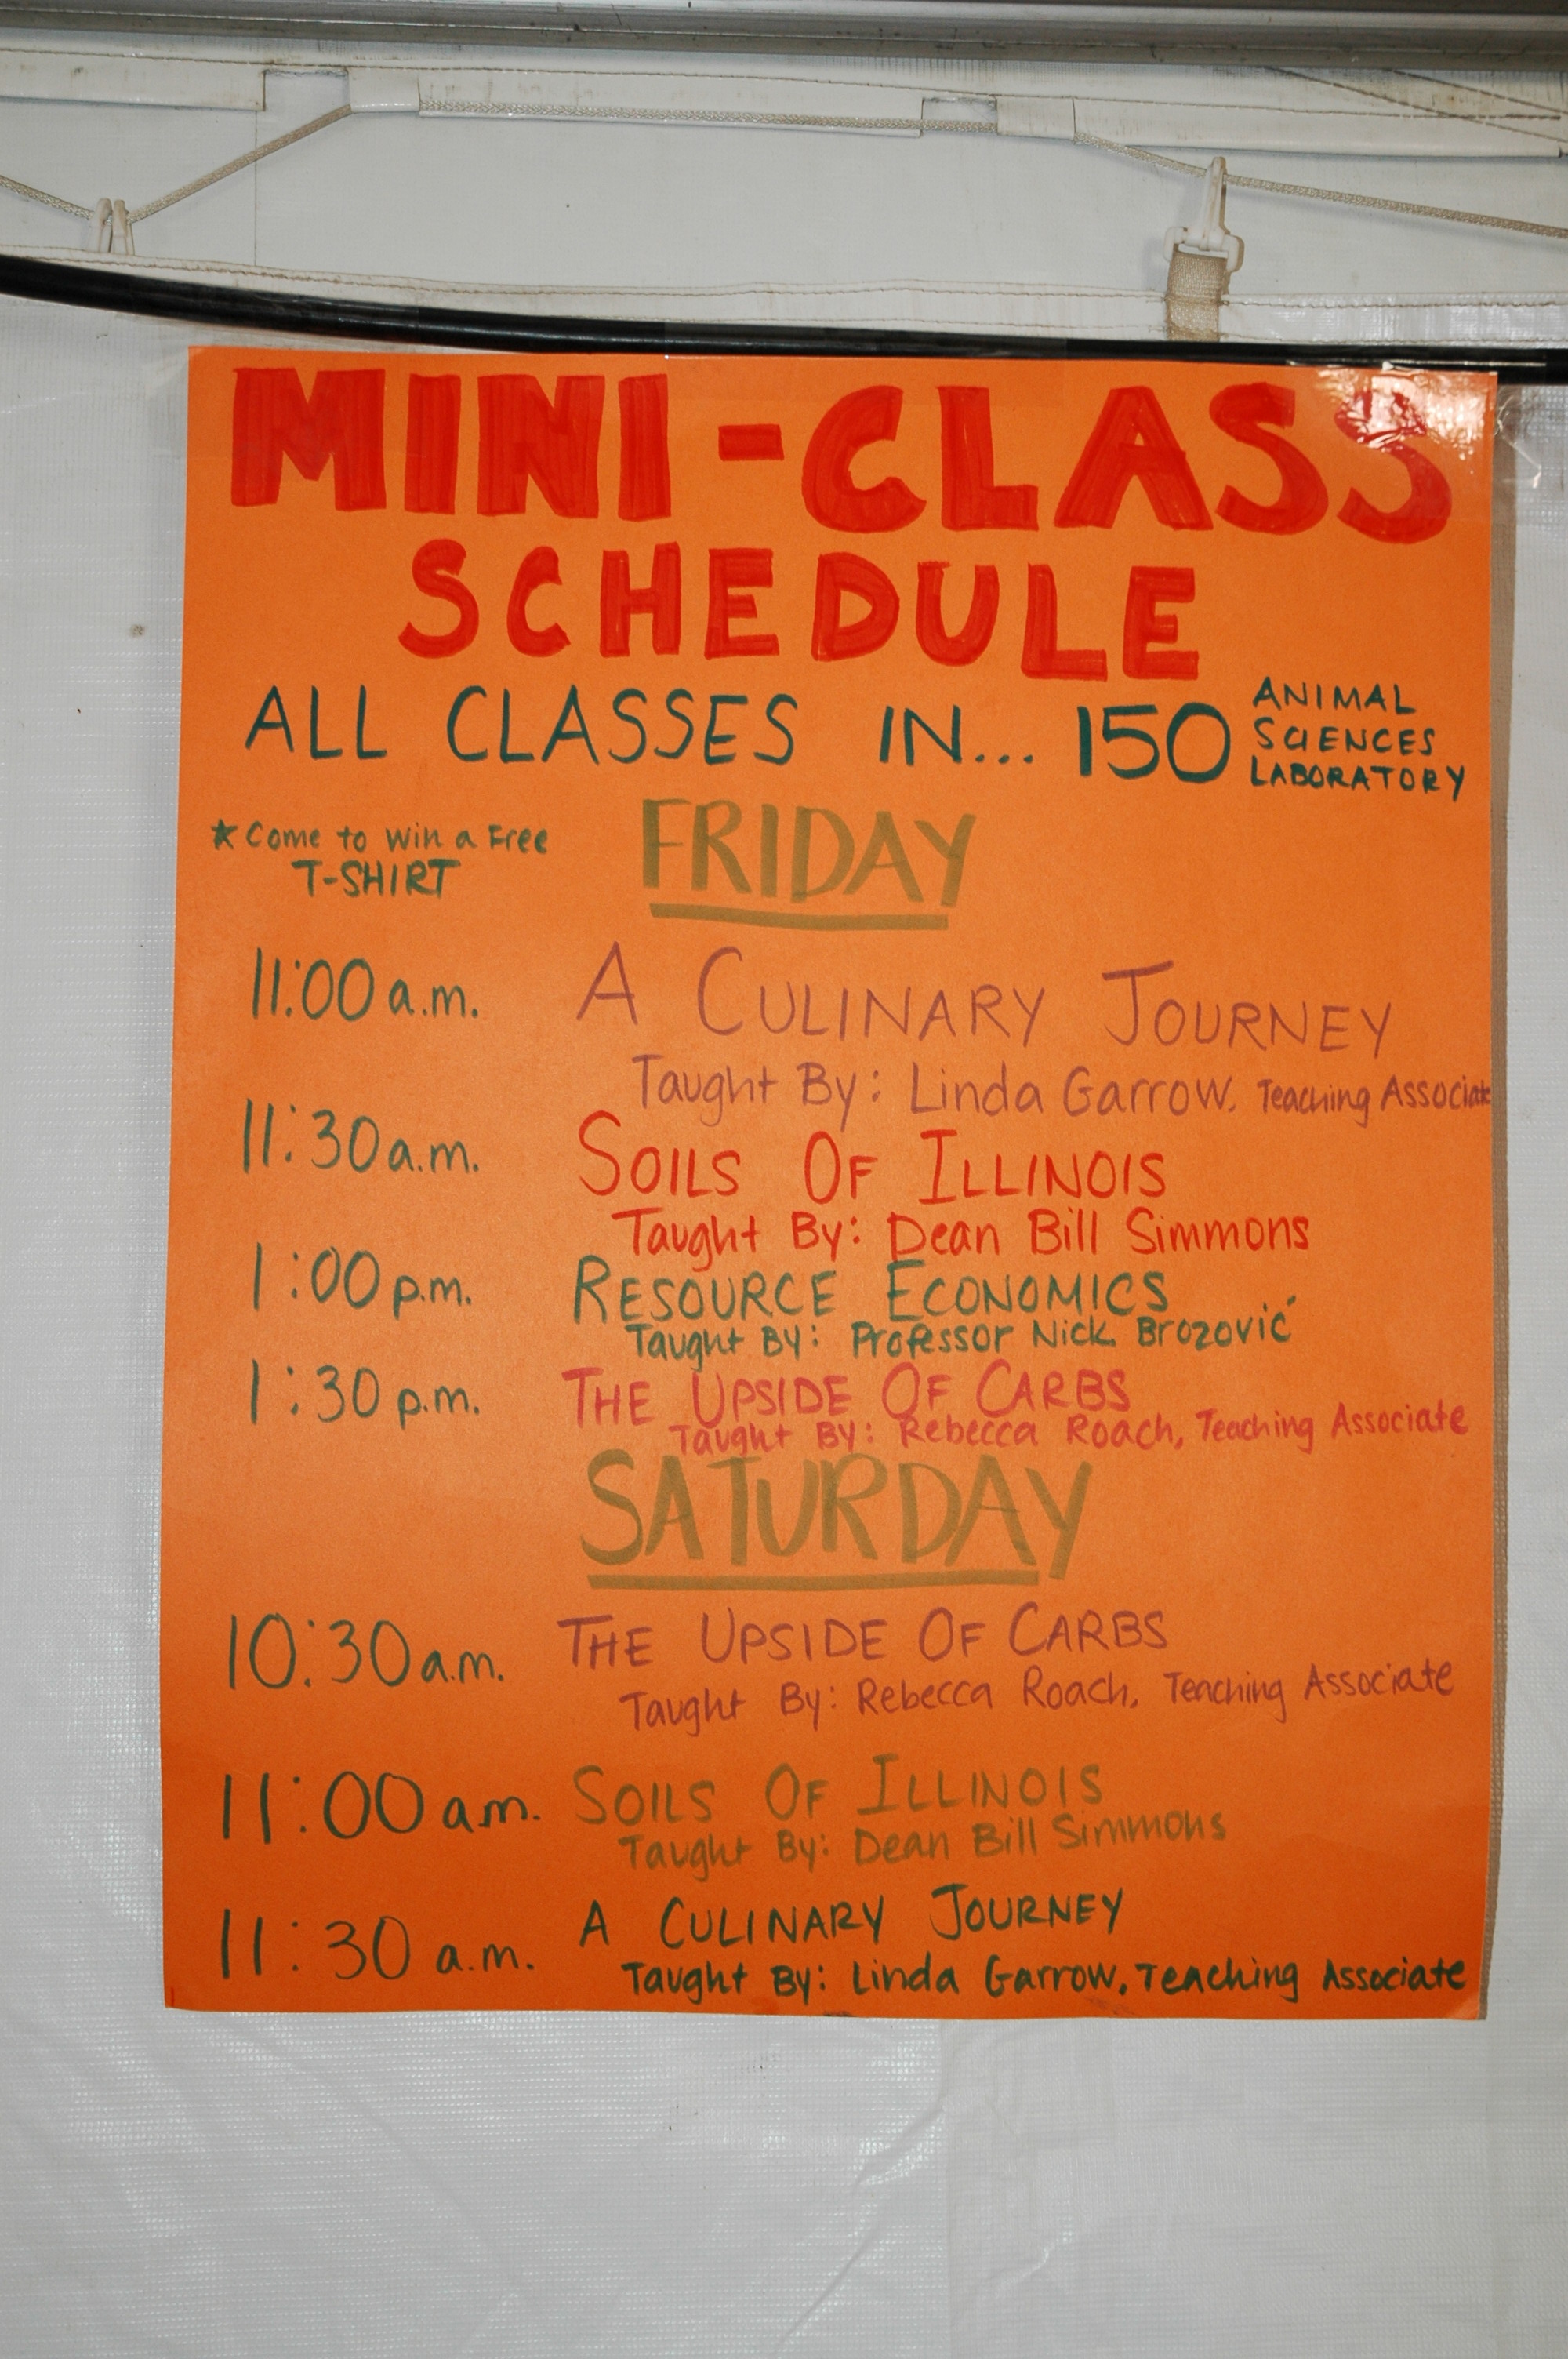 MINI-CLASS
SCHEDULE
ALL CLASSES IN... 150 ANIMAL
SCIENCES
LABORATORY
★ Come to Win a Free
T-SHIRT
FRIDAY
11:00 a.m. A CULINARY JOURNEY
Taught By: Linda Garrow, Teaching Associate
11:30 a.m. SOILS OF ILLINOIS
Taught By: Dean Bill Simmons
1:00 p.m. RESOURCE ECONOMICS
Taught By: Professor Nick Brozović
1:30 p.m. THE UPSIDE OF CARBS
Taught By: Rebecca Roach, Teaching Associate
SATURDAY
10:30 a.m. THE UPSIDE OF CARBS
Taught By: Rebecca Roach, Teaching Associate
11:00 a.m. SOILS OF ILLINOIS
Taught By: Dean Bill Simmons
11:30 a.m. A CULINARY JOURNEY
Taught By: Linda Garrow, Teaching Associate